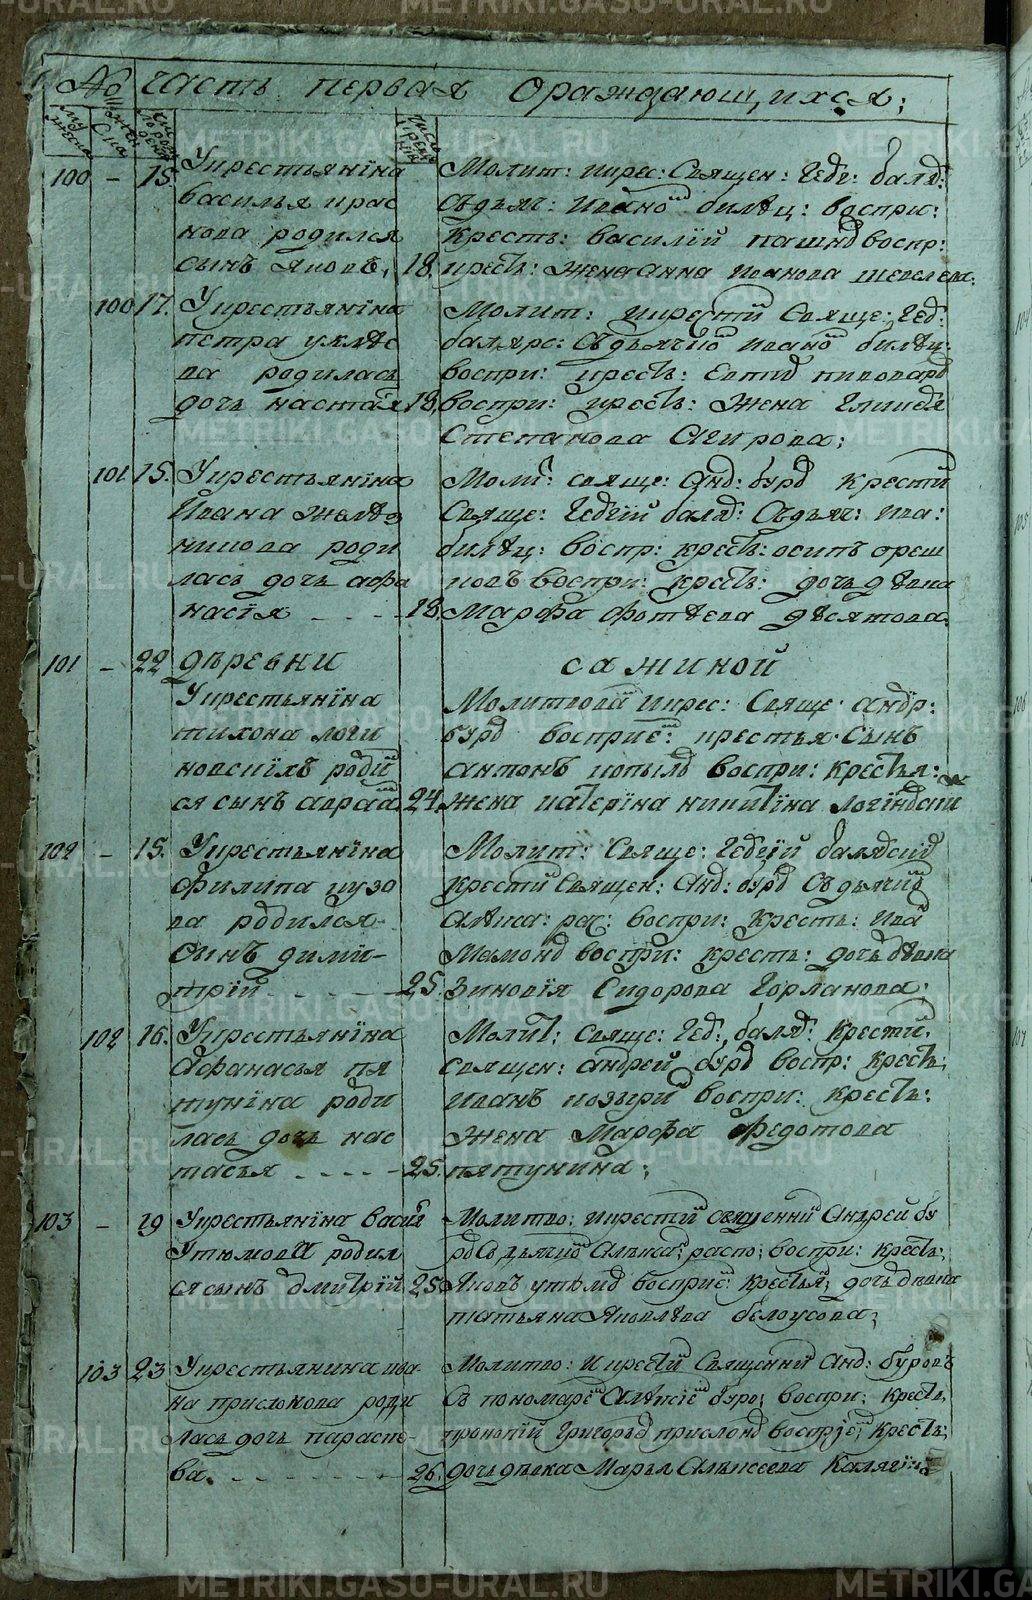 № Часть первая ораждающихся;
100 – 15. У крестьянїна
василья крас
нова родился
сынъ яковъ, 18.
Молит: икрес: Священ: Геде: баляр:
Съдьяч: Ивано билѣц: воспри:
Кресть: василий пашнв воспр:
крест: Жена анна иванова шевелева:
100 17. У крестьянїна
петра уклѣс
ва родилась
дочь настася 18,
Молит: икрестй Свяще: Гед:
балярс: Съдьячкö ивано билѣц:
воспри: крест: Евтид пивовард
воспри: крест: Жена
Степанова Агирова;
101 15. У крестьянїна
Ивана желѣз
никова роди
лась дочь афа
насїя - - - 18.
Моли: свяще: Анд: бурд крестй
Свяще: Гедейй баляр: Съдьяч: ива:
билѣц: воспр: крест: осипъ ореш
ковъ воспри: крест: дочь дѣвка
Марфа фотѣева дѣсятова.
101 – 22 дѣревни сажиной
У крестьянїна
тихона логи
новскихъ роди
ся сынъ авраа 24.
Молитвова икрес: Свяще: андр:
бурд восприе: крестья: Сынъ
антонъ копылв воспри: крестья:
жена катерїна никитїна логїнвски
102 – 15. У крестьянїна
Филипа кузо
ва родился
Сынъ дими-
трїй - - - 25.
Молит: Свяще: Гедейй балярскїд
крести Священ: Анд: бурд Съдьячкїд
Алѣка: рас: воспри: кресть: ива
Мамонв воспри: кресть: дочь дѣвка
Зиновїя Сидорова Горланова;
102 16. У крестьянїна
Афанасья пя
тунїна роди
лась дочь нас
тасья - - - 25.
Молит: Свяще: Гед: баляр: Крестй
Священ: андрей бурд воспр: крест:
Иванъ козырй воспри: крест:
Жена Марфа Федотова
пятунина;
103 – 19 У крестьянїна васил
Утюмова родил
ся сынъ дмитрїй 25.
Молитво: икрестй священнй Андрей бу
рв Съдьячкö Алѣкса: распо; воспри: кресть;
Яковъ утюмв восприе: крестья: дочь дѣвка
татьяна Яковлева бѣлоусова;
103 23 У крестьянина ива
на прислокова роди
лась дочь параске-
ва. - - - 26.
Молитво: Икрестй Священнй Анд: буровъ
Съ пономарѣ Алѣксїе буро; воспри: крест;
прокопїй Григорьв прислонв восприе; кресть;
дочь дѣвка Марья Алѣксеева Калягїна